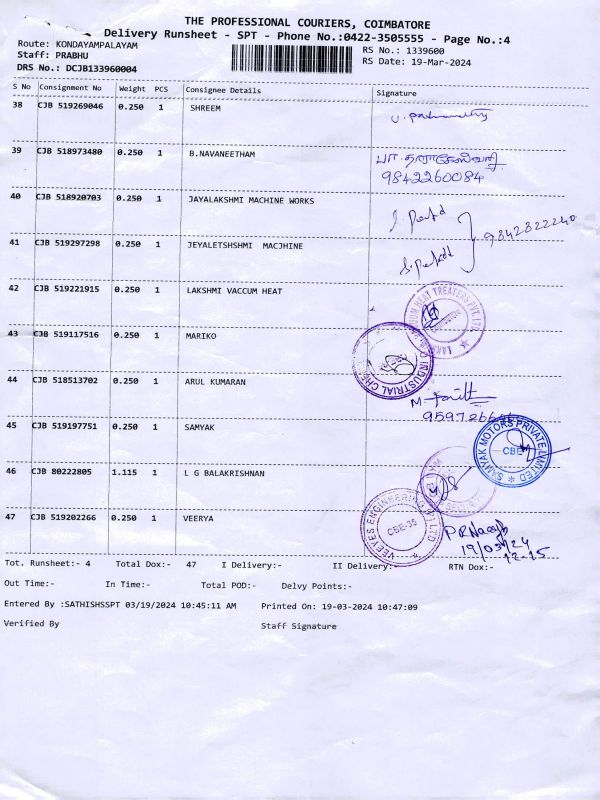 THE PROFESSIONAL COURIERS, COIMBATORE
Delivery Runsheet - SPT - Phone No.:0422-3505555 - Page No.:4
Route: KONDAYAMPALAYAM
Staff: PRABHU
DRS No.: DCJB133960004
RS No.: 1339600
RS Date: 19-Mar-2024
S No Consignment No Weight PCS Consignee Details Signature
38 CJB 519269046 0.250 1 SHREEM
39 CJB 518973480 0.250 1 B.NAVANEETHAM
9842260084
40 CJB 518920703 0.250 1 JAYALAKSHMI MACHINE WORKS
9842322240
41 CJB 519297298 0.250 1 JEYALETSHSHMI MACJHINE
42 CJB 519221915 0.250 1 LAKSHMI VACCUM HEAT
43 CJB 519117516 0.250 1 MARIKO
44 CJB 518513702 0.250 1 ARUL KUMARAN
45 CJB 519197751 0.250 1 SAMYAK
SAMYAK MOTORS PRIVATE LIMITED
CBE
46 CJB 80222805 1.115 1 L G BALAKRISHNAN
47 CJB 519202266 0.250 1 VEERYA
VEEYES ENGINEERING PVT LTD
CBE-35
19/03/24
12.15
Tot. Runsheet:- 4 Total Dox:- 47 I Delivery:- II Delivery:- RTN Dox:-
Out Time:- In Time:- Total POD:- Delvy Points:-
Entered By :SATHISHSSPT 03/19/2024 10:45:11 AM Printed On: 19-03-2024 10:47:09
Verified By Staff Signature